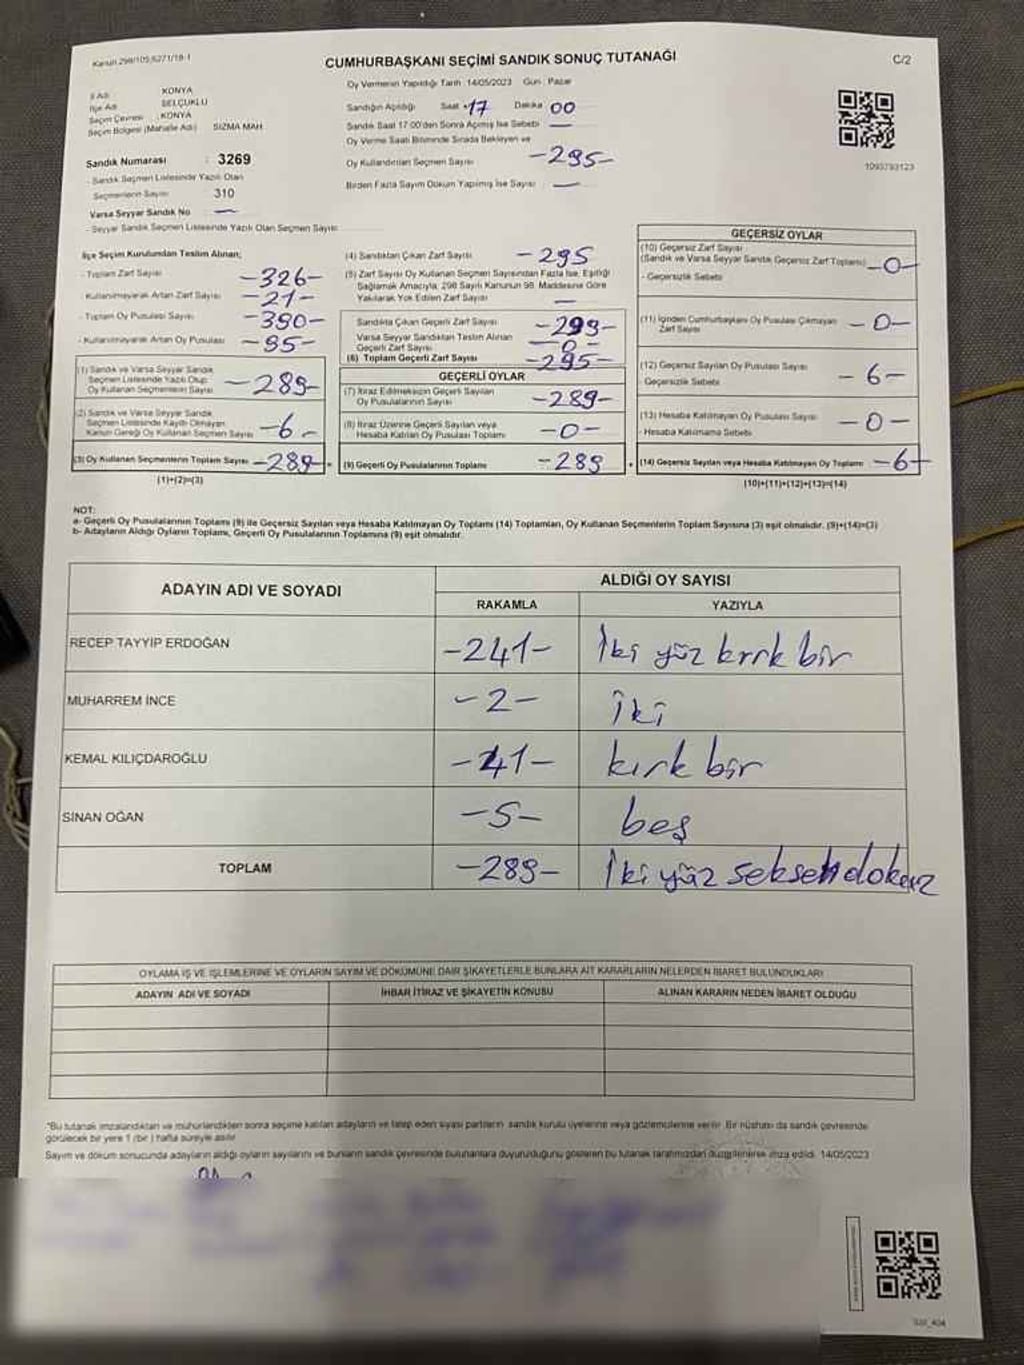 Kanun 298/105,6271/18-1
CUMHURBAŞKANI SEÇİMİ SANDIK SONUÇ TUTANAĞI
C/2
İl Adı KONYA
İlçe Adı SELÇUKLU
Seçim Çevresi : KONYA
Seçim Bölgesi (Mahalle Adı) SIZMA MAH.
Sandık Numarası : 3269
- Sandık Seçmen Listesinde Yazılı Olan
Seçmenlerin Sayısı 310
Varsa Seyyar Sandık No —
- Seyyar Sandık Seçmen Listesinde Yazılı Olan Seçmen Sayısı
Oy Vermenin Yapıldığı Tarih : 14/05/2023 Gün : Pazar
Sandığın Açıldığı Saat 17 Dakika 00
Sandık Saat 17:00'den Sonra Açılmış İse Sebebi —
Oy Verme Saati Bitiminde Sırada Bekleyen ve
Oy Kullandırılan Seçmen Sayısı -295-
Birden Fazla Sayım Döküm Yapılmış İse Sayısı —
1093793123
İlçe Seçim Kurulundan Teslim Alınan;
- Toplam Zarf Sayısı -326-
Kullanılmayarak Artan Zarf Sayısı -21-
- Toplam Oy Pusulası Sayısı -390-
- Kullanılmayarak Artan Oy Pusulası -95-
(1) Sandık ve Varsa Seyyar Sandık
Seçmen Listesinde Yazılı Olup
Oy Kullanan Seçmenlerin Sayısı -289-
(2) Sandık ve Varsa Seyyar Sandık
Seçmen Listesinde Kaydı Olmayan
Kanun Gereği Oy Kullanan Seçmen Sayısı -6-
(3) Oy Kullanan Seçmenlerin Toplam Sayısı -289-
(1)+(2)=(3)
(4) Sandıktan Çıkan Zarf Sayısı -295
(5) Zarf Sayısı Oy Kullanan Seçmen Sayısından Fazla İse, Eşitliği
Sağlamak Amacıyla, 298 Sayılı Kanunun 98. Maddesine Göre
Yakılarak Yok Edilen Zarf Sayısı —
Sandıkta Çıkan Geçerli Zarf Sayısı -299-
Varsa Seyyar Sandıktan Teslim Alınan
Geçerli Zarf Sayısı -0-
(6) Toplam Geçerli Zarf Sayısı -295-
GEÇERLİ OYLAR
(7) İtiraz Edilmeksizin Geçerli Sayılan
Oy Pusulalarının Sayısı -289-
(8) İtiraz Üzerine Geçerli Sayılan veya
Hesaba Katılan Oy Pusulası Toplamı -0-
(9) Geçerli Oy Pusulalarının Toplamı -289
GEÇERSİZ OYLAR
(10) Geçersiz Zarf Sayısı
(Sandık ve Varsa Seyyar Sandık Geçersiz Zarf Toplamı) -0-
- Geçersizlik Sebebi
(11) İçinden Cumhurbaşkanı Oy Pusulası Çıkmayan
Zarf Sayısı -0-
(12) Geçersiz Sayılan Oy Pusulası Sayısı -6-
- Geçersizlik Sebebi
(13) Hesaba Katılmayan Oy Pusulası Sayısı -0-
- Hesaba Katılmama Sebebi
(14) Geçersiz Sayılan veya Hesaba Katılmayan Oy Toplamı -6-
(10)+(11)+(12)+(13)=(14)
NOT:
a- Geçerli Oy Pusulalarının Toplamı (9) ile Geçersiz Sayılan veya Hesaba Katılmayan Oy Toplamı (14) Toplamları, Oy Kullanan Seçmenlerin Toplam Sayısına (3) eşit olmalıdır. (9)+(14)=(3)
b- Adayların Aldığı Oyların Toplamı, Geçerli Oy Pusulalarının Toplamına (9) eşit olmalıdır.
ADAYIN ADI VE SOYADI
ALDIĞI OY SAYISI
RAKAMLA YAZIYLA
RECEP TAYYIP ERDOĞAN -241- İki yüz kırk bir
MUHARREM İNCE -2- İki
KEMAL KILIÇDAROĞLU -41- kırk bir
SİNAN OĞAN -5- beş
TOPLAM -289- İki yüz seksen dokuz
OYLAMA İŞ VE İŞLEMLERİNE VE OYLARIN SAYIM VE DÖKÜMÜNE DAİR ŞİKAYETLERLE BUNLARA AİT KARARLARIN NELERDEN İBARET BULUNDUKLARI
ADAYIN ADI VE SOYADI İHBAR İTİRAZ VE ŞİKAYETİN KONUSU ALINAN KARARIN NEDEN İBARET OLDUĞU
*Bu tutanak imzalandıktan ve mühürlendikten sonra seçime katılan adayların ve talep eden siyasi partilerin sandık kurulu üyelerine veya gözlemcilerine verilir. Bir nüshası da sandık çevresinde
görülecek bir yere 1 (bir) hafta süreyle asılır.
Sayım ve döküm sonucunda adayların aldığı oyların sayılarını ve bunların sandık çevresinde bulunanlara duyurulduğunu gösteren bu tutanak tarafımızdan düzenlenerek imza edildi. 14/05/2023